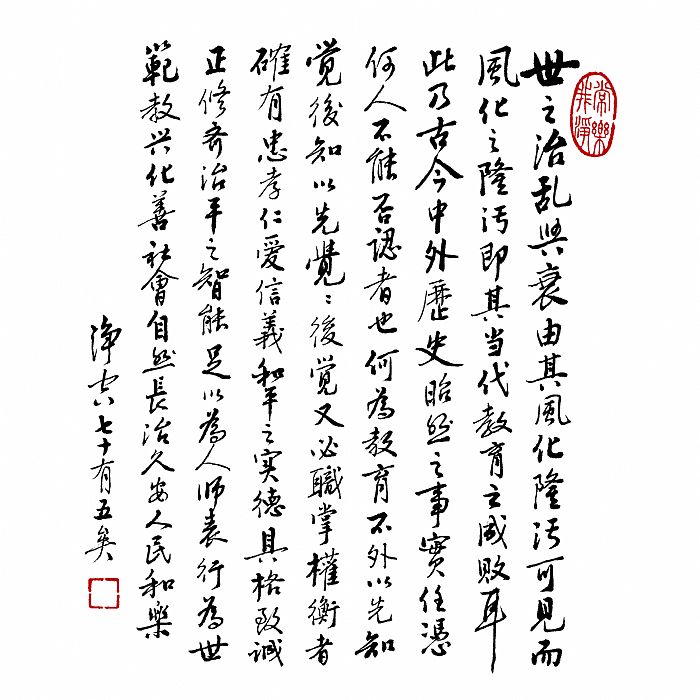 常樂
我淨
世之治乱興衰由其風化隆污可見而
風化之隆污即其当代教育之成敗耳
此乃古今中外歷史昭然之事實任憑
何人不能否認者也何為教育不外以先知
覺後知以先覺〻後覺又必職掌權衡者
確有忠孝仁愛信義和平之实德具格致誠
正修齐治平之智能足以為人師表行為世
範教兴化善社會自然長治久安人民和樂
淨空七十有五矣